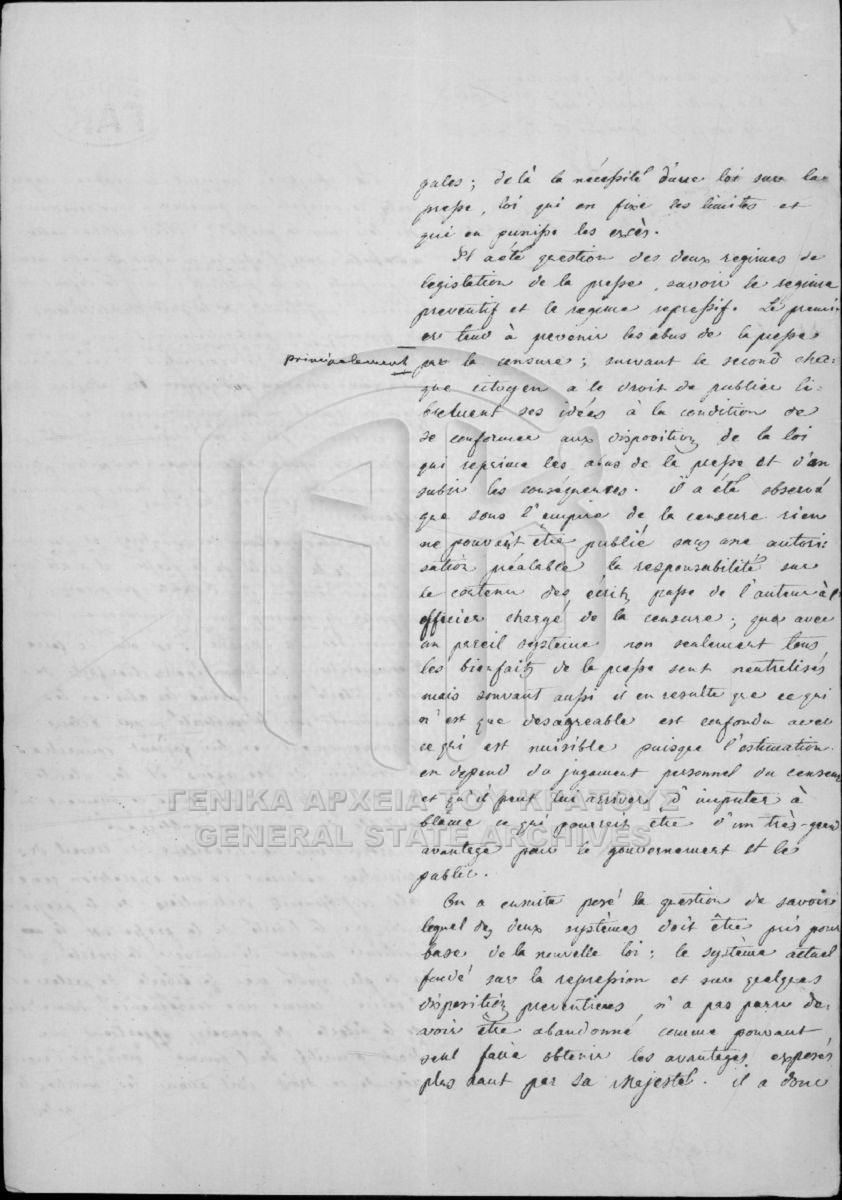 gales; de là la nécessité d'une loi sur la
presse, loi qui en fixe les limites et
qui en punisse les excès.
Il a été question des deux regimes de
legislation de la presse, savoir le regime
preventif et le regime repressif. Le premi-
er tend à prévenir les abus de la presse
principalement
par la censure; suivant le second cha-
que citoyen a le droit de publier li-
brement ses idées à la condition de
se conformer aux dispositions de la loi
qui reprime les abus de la presse et d'en
subir les conséquences. il a été observé
que sous l'empire de la censure rien
ne pouvant être publié sans une autori-
sation préalable la responsabilité sur
le contenu des écrits passe de l'auteur à l'
officier chargé de la censure; que avec
un pareil systeme non seulement tous
les bienfaits de la presse sont neutralisés
mais souvant aussi il en resulte que ce qui
n'est que desagreable est confondu avec
ce qui est nuisible puisque l'estimation
en depend du jugement personnel du censeur
et qu'il peut lui arriver d'imputer à
blame ce qui pourrait être d'un très-grand
avantage pour le gouvernement et le
public.
On a ensuite posé la question de savoir
lequel des deux systèmes doit être pris pour
base de la nouvelle loi; le système actuel
fondé sur la repression et sur quelques
dispositions preventives n'a pas paru de-
voir être abandonné comme pouvant
seul faire obtenir les avantages exposés
plus haut par sa Majesté. il a donc
ΓΕΝΙΚΑ ΑΡΧΕΙΑ ΤΟΥ ΚΡΑΤΟΥΣ
GENERAL STATE ARCHIVES